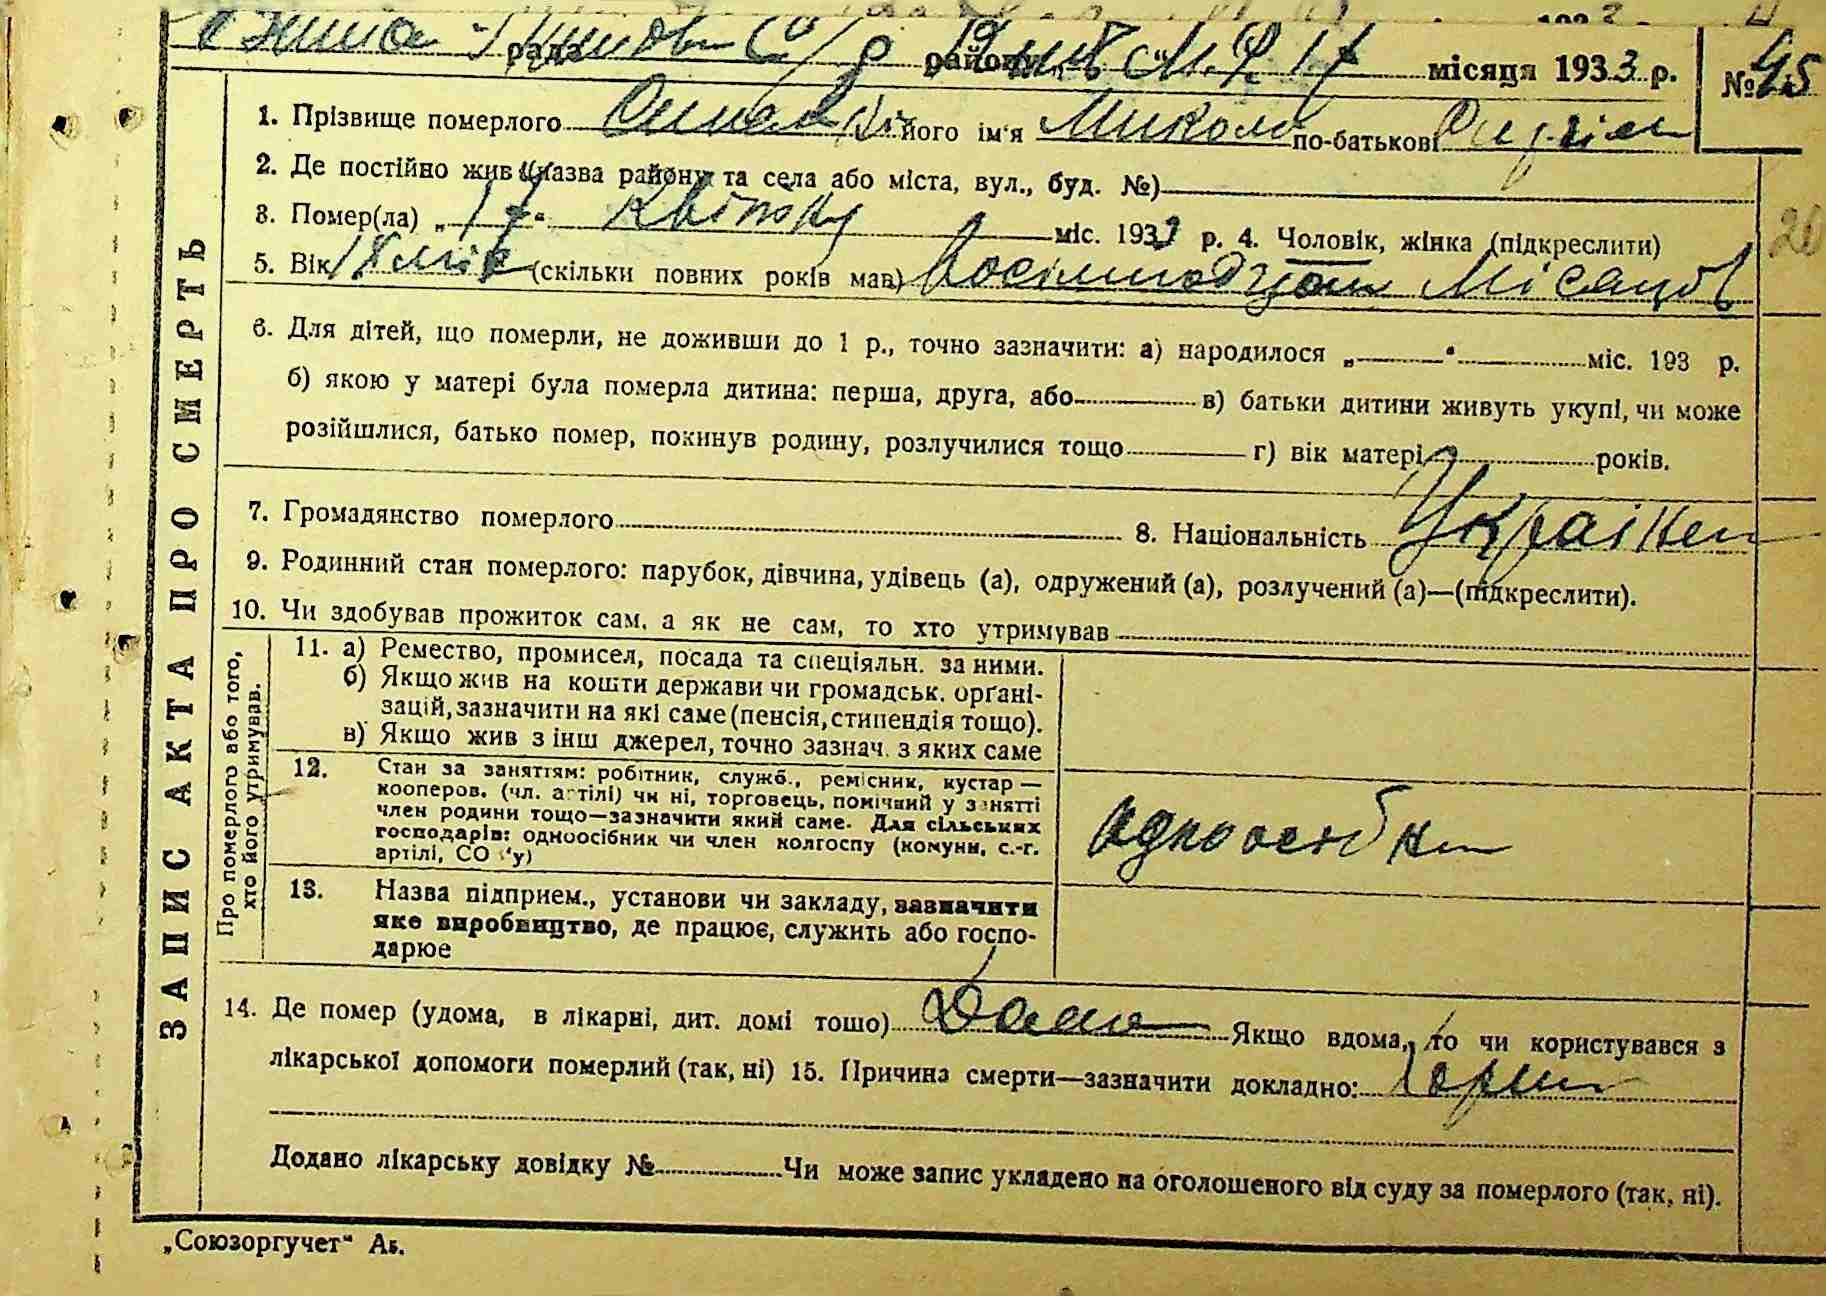 рада район 17 місяця 1933 р. № 45
1. Прізвище померлого його ім'я Микола по-батькові
2. Де постійно жив (назва району та села або міста, вул., буд. №)
3. Помер(ла) „17“ Квітня міс. 1933 р. 4. Чоловік, жінка (підкреслити)
26
5. Вік 18 міс (скільки повних років мав) Восімнадцать Місяцов
6. Для дітей, що померли, не доживши до 1 р., точно зазначити: а) народилося „ “ міс. 193 р.
б) якою у матері була померла дитина: перша, друга, або в) батьки дитини живуть укупі, чи може
розійшлися, батько помер, покинув родину, розлучилися тощо г) вік матері років.
7. Громадянство померлого 8. Національність Українец
9. Родинний стан померлого: парубок, дівчина, удівець (а), одружений (а), розлучений (а)—(підкреслити).
10. Чи здобував прожиток сам, а як не сам, то хто утримував
11. а) Ремество, промисел, посада та спеціяльн. за ними.
б) Якщо жив на кошти держави чи громадськ. орґані-
зацій, зазначити на які саме (пенсія, стипендія тощо).
в) Якщо жив з інш джерел, точно зазнач. з яких саме
12. Стан за заняттям: робітник, служб., ремісник, кустар —
кооперов. (чл. артілі) чи ні, торговець, помічний у занятті
член родини тощо—зазначити який саме. Для сільських
господарів: одноосібник чи член колгоспу (комуни, с.-г.
артілі, СО У)
одноосібник
13. Назва підприєм., установи чи закладу, зазначити
яке виробництво, де працює, служить або госпо-
дарює
Про померлого або того,
хто його утримував.
14. Де помер (удома, в лікарні, дит. домі тощо) Дома Якщо вдома, то чи користувався з
лікарської допомоги померлий (так, ні) 15. Причина смерти—зазначити докладно:
Додано лікарську довідку № Чи може запис укладено на оголошеного від суду за померлого (так, ні).
ЗАПИС АКТА ПРО СМЕРТЬ
„Союзоргучет“ Аб.